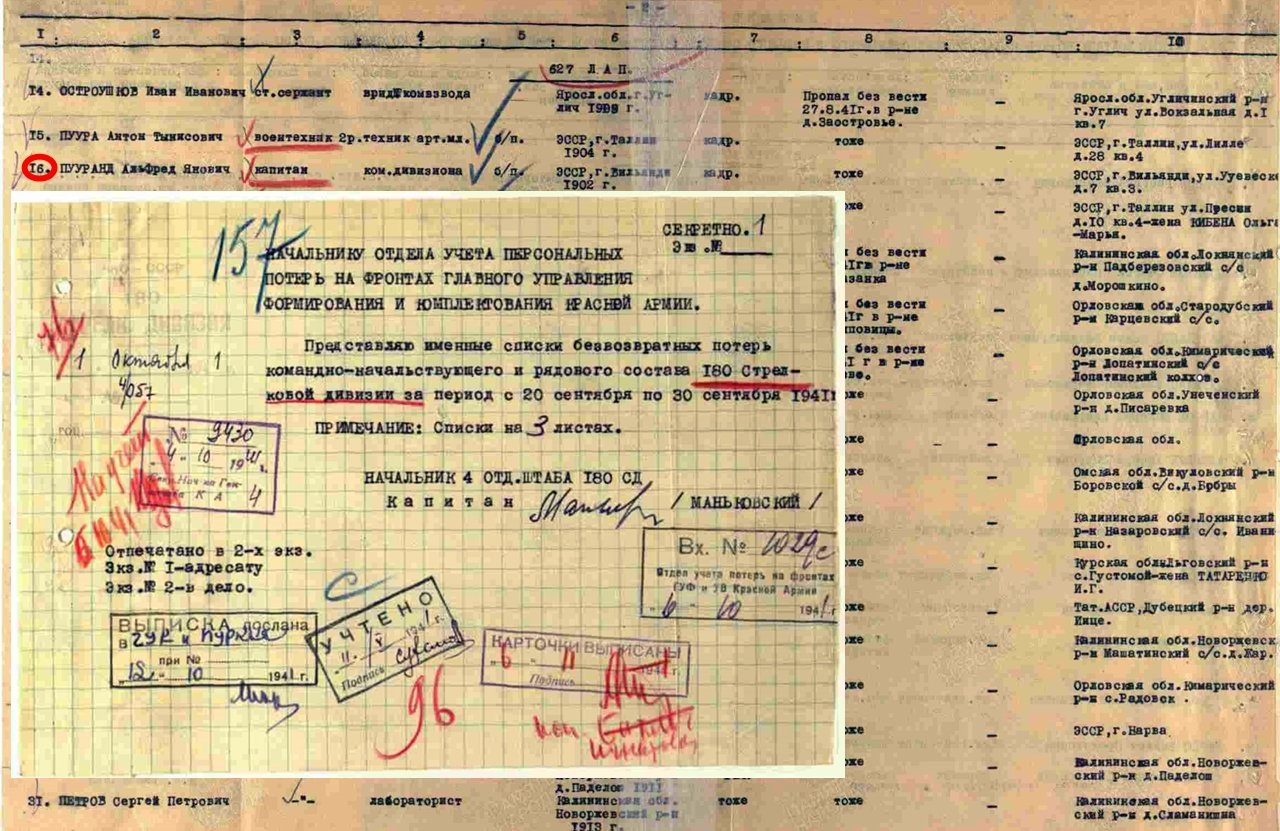 - 2 -
I 2 3 4 5 6 7 8 9 10
627 Л А П.
I4. ОСТРОУШКОВ Иван Иванович ст.сержант врид комвзвода Яросл.обл.г.Уг- кадр. Пропал без вести – Яросл.обл.Угличинский р-н
лич 1909 г. 27.8.4Iг.в р-не г.Углич ул.Вокзальная д.I
д.Заостровье. кв.7
I5. ПУУРА Антон Тынисович воентехник 2р.техник арт.мл. б/п. ЭССР,г.Таллин кадр. тоже – ЭССР,г.Таллин,ул.Лилле
1904 г. д.28 кв.4
I6. ПУУРАНД Альфред Янович капитан ком.дивизиона б/п. ЭССР,г.Вильянди кадр. тоже – ЭССР,г.Вильянди,ул.Уувеске
1902 г. д.7 кв.3.
СЕКРЕТНО. 1
Экз.№
157
НАЧАЛЬНИКУ ОТДЕЛА УЧЕТА ПЕРСОНАЛЬНЫХ
ПОТЕРЬ НА ФРОНТАХ ГЛАВНОГО УПРАВЛЕНИЯ
ФОРМИРОВАНИЯ И КОМПЛЕКТОВАНИЯ КРАСНОЙ АРМИИ.
1 Октября 1
4/057
Представляю именные списки безвозвратных потерь
командно-начальствующего и рядового состава I80 Стрел-
ковой дивизии за период с 20 сентября по 30 сентября 1941г
ПРИМЕЧАНИЕ: Списки на 3 листах.
№ 9430
"4" 10 1941г.
К А 4
НАЧАЛЬНИК 4 ОТД.ШТАБА I80 СД
Капитан / МАНЬКОВСКИЙ /
Отпечатано в 2-х экз.
Экз.№ I-адресату
Экз.№ 2-в дело.
Вх. № 1029с
Отдел учета потерь на фронтах
ГУФ и УВ Красной Армии
"6" 10 1941г.
ВЫПИСКА послана
в ГУК и ПУРККА
при №
"12" 10 1941г.
УЧТЕНО
Подпись
КАРТОЧКИ ВЫПИСАНЫ
"6" 11
Подпись
96
же ЭССР,г.Таллин ул.Пресни
– д.I0 кв.4-жена КИБЕНА Ольга
-Марья.
без вести Калининская обл.Локнянский
– р-н Падберезовский с/с
д.Морошкино.
без вести Орловская обл.Стародубский
– р-н Карцевский с/с.
без вести Орловская обл.Кимарический
– р-н Лопатинский с/с
Лопатинский колхоз.
оже – Орловская обл.Унеченский
р-н д.Писаревка
оже – Орловская обл.
оже – Омская обл.Викуловский р-н
Боровской с/с.д.Ербры
оже – Калининская обл.Локнянский
р-н Назаровский с/с. Ивани
щино.
оже – Курская обл.Льговский р-н
с.Густомой-жена ТАТАРЕНКО
И.Г.
оже – Тат.АССР,Дубецкий р-н дер.
Имце.
оже – Калининская обл.Новоржевск
р-н Машатинский с/с.д.Жар.
оже – Орловская обл.Кимарический
р-н с.Радовск .
оже – ЭССР,г.Нарва
оже – Калининская обл.Новоржев-
ский р-н д.Паделош
д.Паделош 1911
3I. ПЕТРОВ Сергей Петрович -"- лабораторист Калининская обл. тоже тоже – Калининская обл.Новоржев-
Новоржевский р-н ский р-н д.Сламанишна
1913 г.